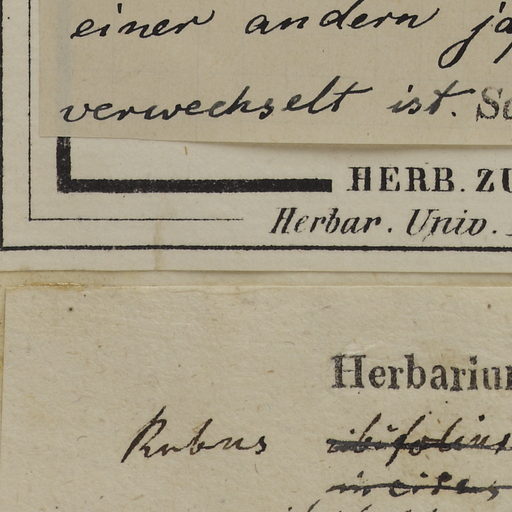 einer andern
verwechselt ist.
HERB. ZU
Herbar. Univ.
Herbariu
Rubus
incisus